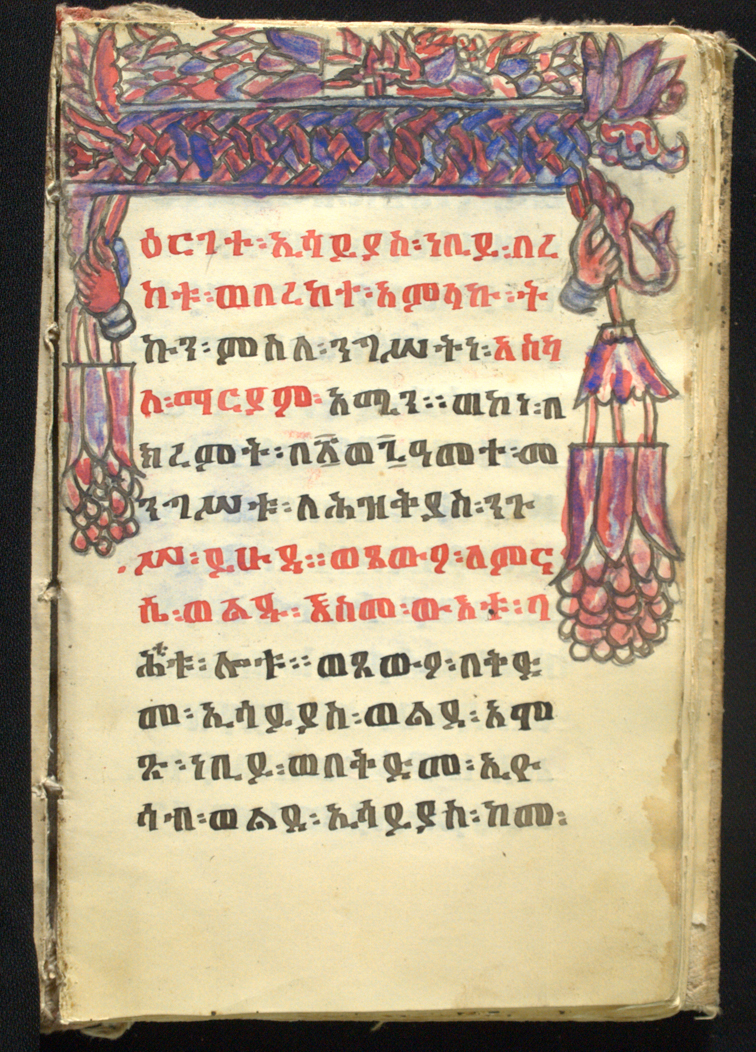 ዕርገተ፡ኢሳይያስ፡ነቢይ፡በረ
ከቱ፡ወበረከተ፡አምላኩ፡ት
ኩን፡ምስለ፡ንግሥትነ፡አስካ
ለ፡ማርያም፡አሜን፡፡ወኮነ፡በ
ክረምት፡በ፳ወ፯ዓመተ፡መ
ንግሥቱ፡ለሕዝቅያስ፡ንጉ
ሥ፡ይሁዳ፡፡ወጸውዖ፡ለምና
ሴ፡ወልዱ፡እስመ፡ውእቱ፡ባ
ሕቲቱ፡ሎቱ፡፡ወጸውዖ፡በቅድ
መ፡ኢሳይያስ፡ወልደ፡አሞ
ጽ፡ነቢይ፡ወበቅድመ፡ኢዮ
ሳብ፡ወልደ፡ኢሳይያስ፡ከመ፡